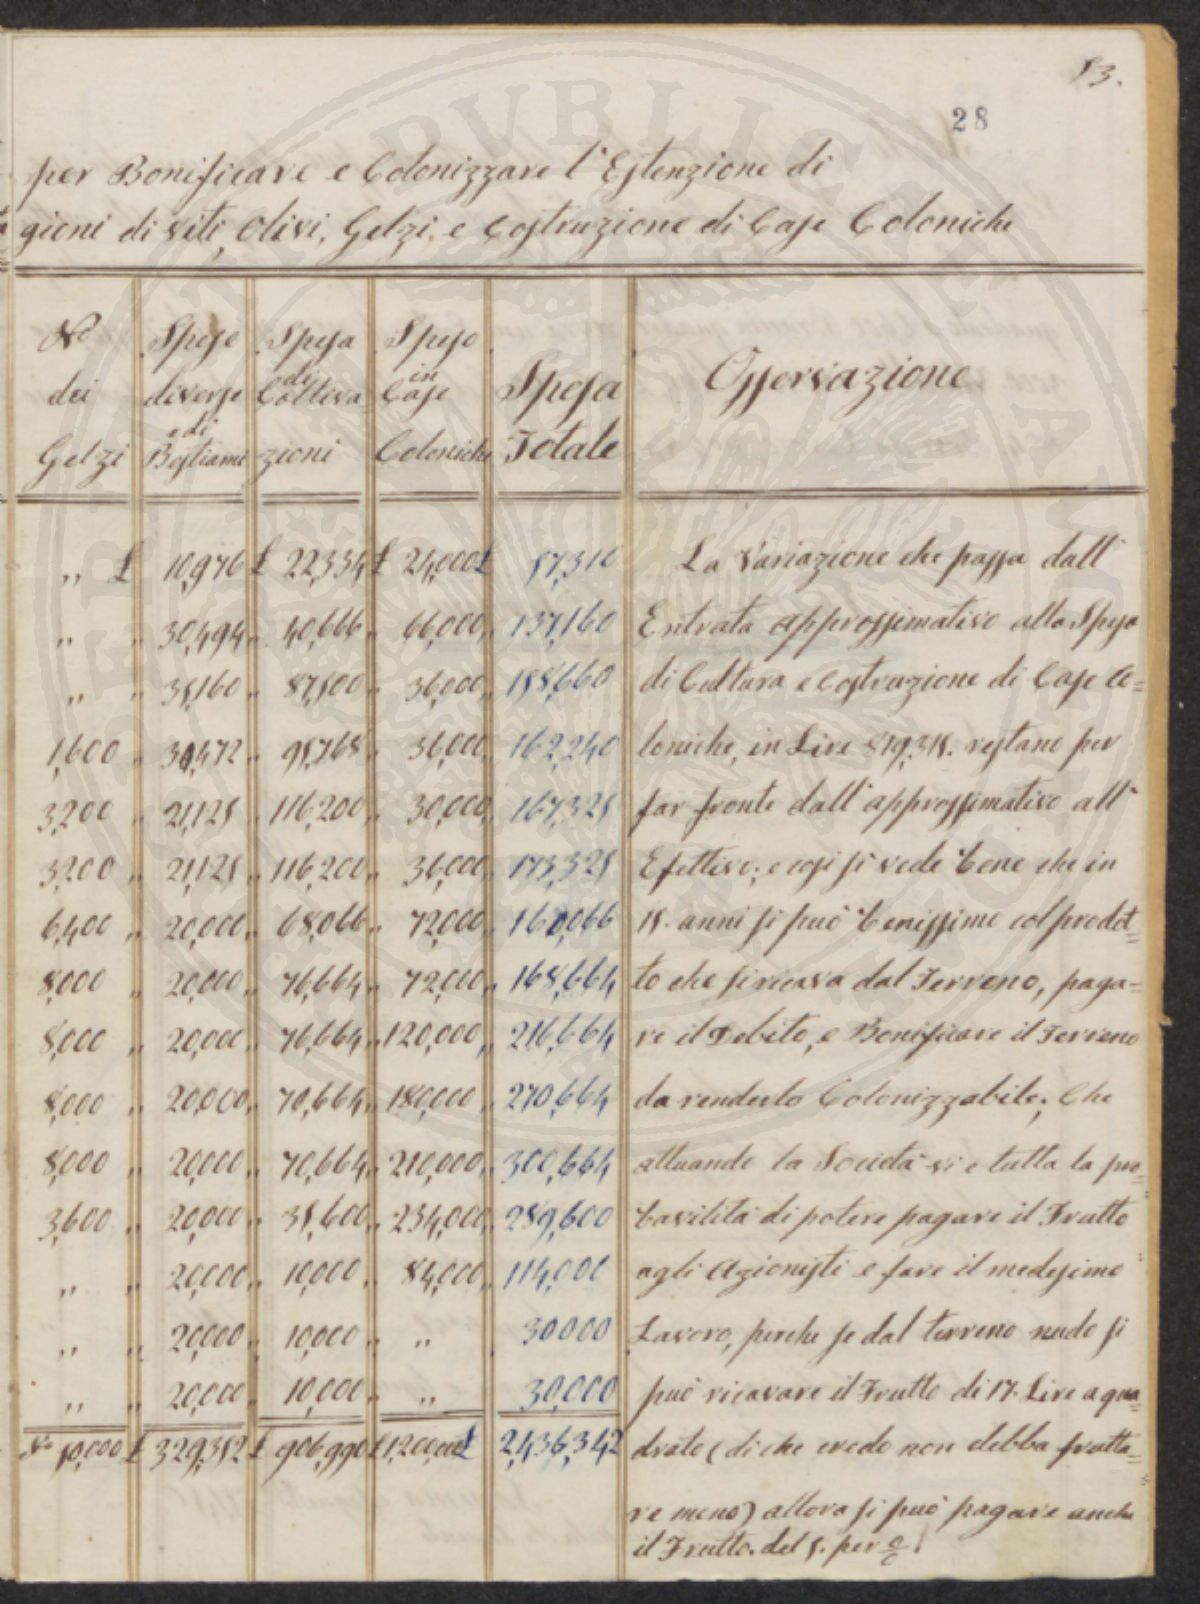 53.
28
per Bonificare e Colonizzare l'Estenzione di
gioni di viti, Olivi, Gelzi, e Costruzione di Case Coloniche
No dei Gelzi | Spese diverse e di Bestiame | Spesa di Coltivazioni | Spese in Case Coloniche | Spesa Totale | Osservazione
„ £ 10,976 £ 22,334 £ 24,000 £ 57,310
„ „ 30,494 „ 40,666 „ 66,000 „ 137,160
„ „ 35,160 „ 87,500 „ 36,000 „ 158,660
1,600 „ 30,472 „ 95,768 „ 36,000 „ 162,240
3,200 „ 21,125 „ 116,200 „ 30,000 „ 167,325
3,200 „ 21,125 „ 116,200 „ 36,000 „ 173,325
6,400 „ 20,000 „ 68,066 „ 72,000 „ 160,066
8,000 „ 20,000 „ 76,664 „ 72,000 „ 168,664
8,000 „ 20,000 „ 76,664 „ 120,000 „ 216,664
8,000 „ 20,000 „ 70,664 „ 180,000 „ 270,664
8,000 „ 20,000 „ 70,664 „ 210,000 „ 300,664
3,600 „ 20,000 „ 35,600 „ 234,000 „ 289,600
„ „ 20,000 „ 10,000 „ 84,000 „ 114,000
„ „ 20,000 „ 10,000 „ „ 30000
„ „ 20,000 „ 10,000 „ „ 30,000
No 50,000 £ 329,352 £ 906,990 £ 1,200,000 £ 2,436,342
La Variazione che passa dall'
Entrata approssimativo alla Spesa
di Cultura e Costruzione di Case Co=
loniche, in Lire 579,315. restano per
far fronte dall'approssimativo all'
Efettivo; e così si vede bene che in
15. anni si può benissimo col prodot=
to che si ricava dal Terreno, paga=
re il Debito, e Bonificare il Terreno
da renderlo Colonizzabile; Che
attuando la Società vi e tutta la pro=
bavilità di potere pagare il Frutto
agli Azionisti e fare il medesimo
Lavoro, perche se dal terreno nudo si
può ricavare il Frutto di 17. Lire a qua=
drato (di che credo non debba frutta=
re meno) allora si può pagare anche
il Frutto del 5. per %.
PUBLICA